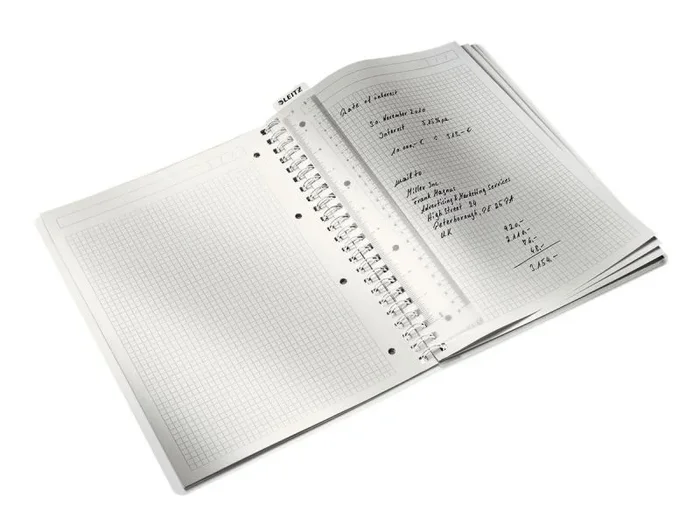 LEITZ
Rate of interest
30. November 2010
Interest 5.15% pa.
10.000,-€ = 515,-€
mail to
Miller Inc.
Frank Magnus
Advertising & Marketing Services
High Street 24
Peterborough, PE 25 PA
UK
920,-
2.110,-
76,-
48,-
3.154,-